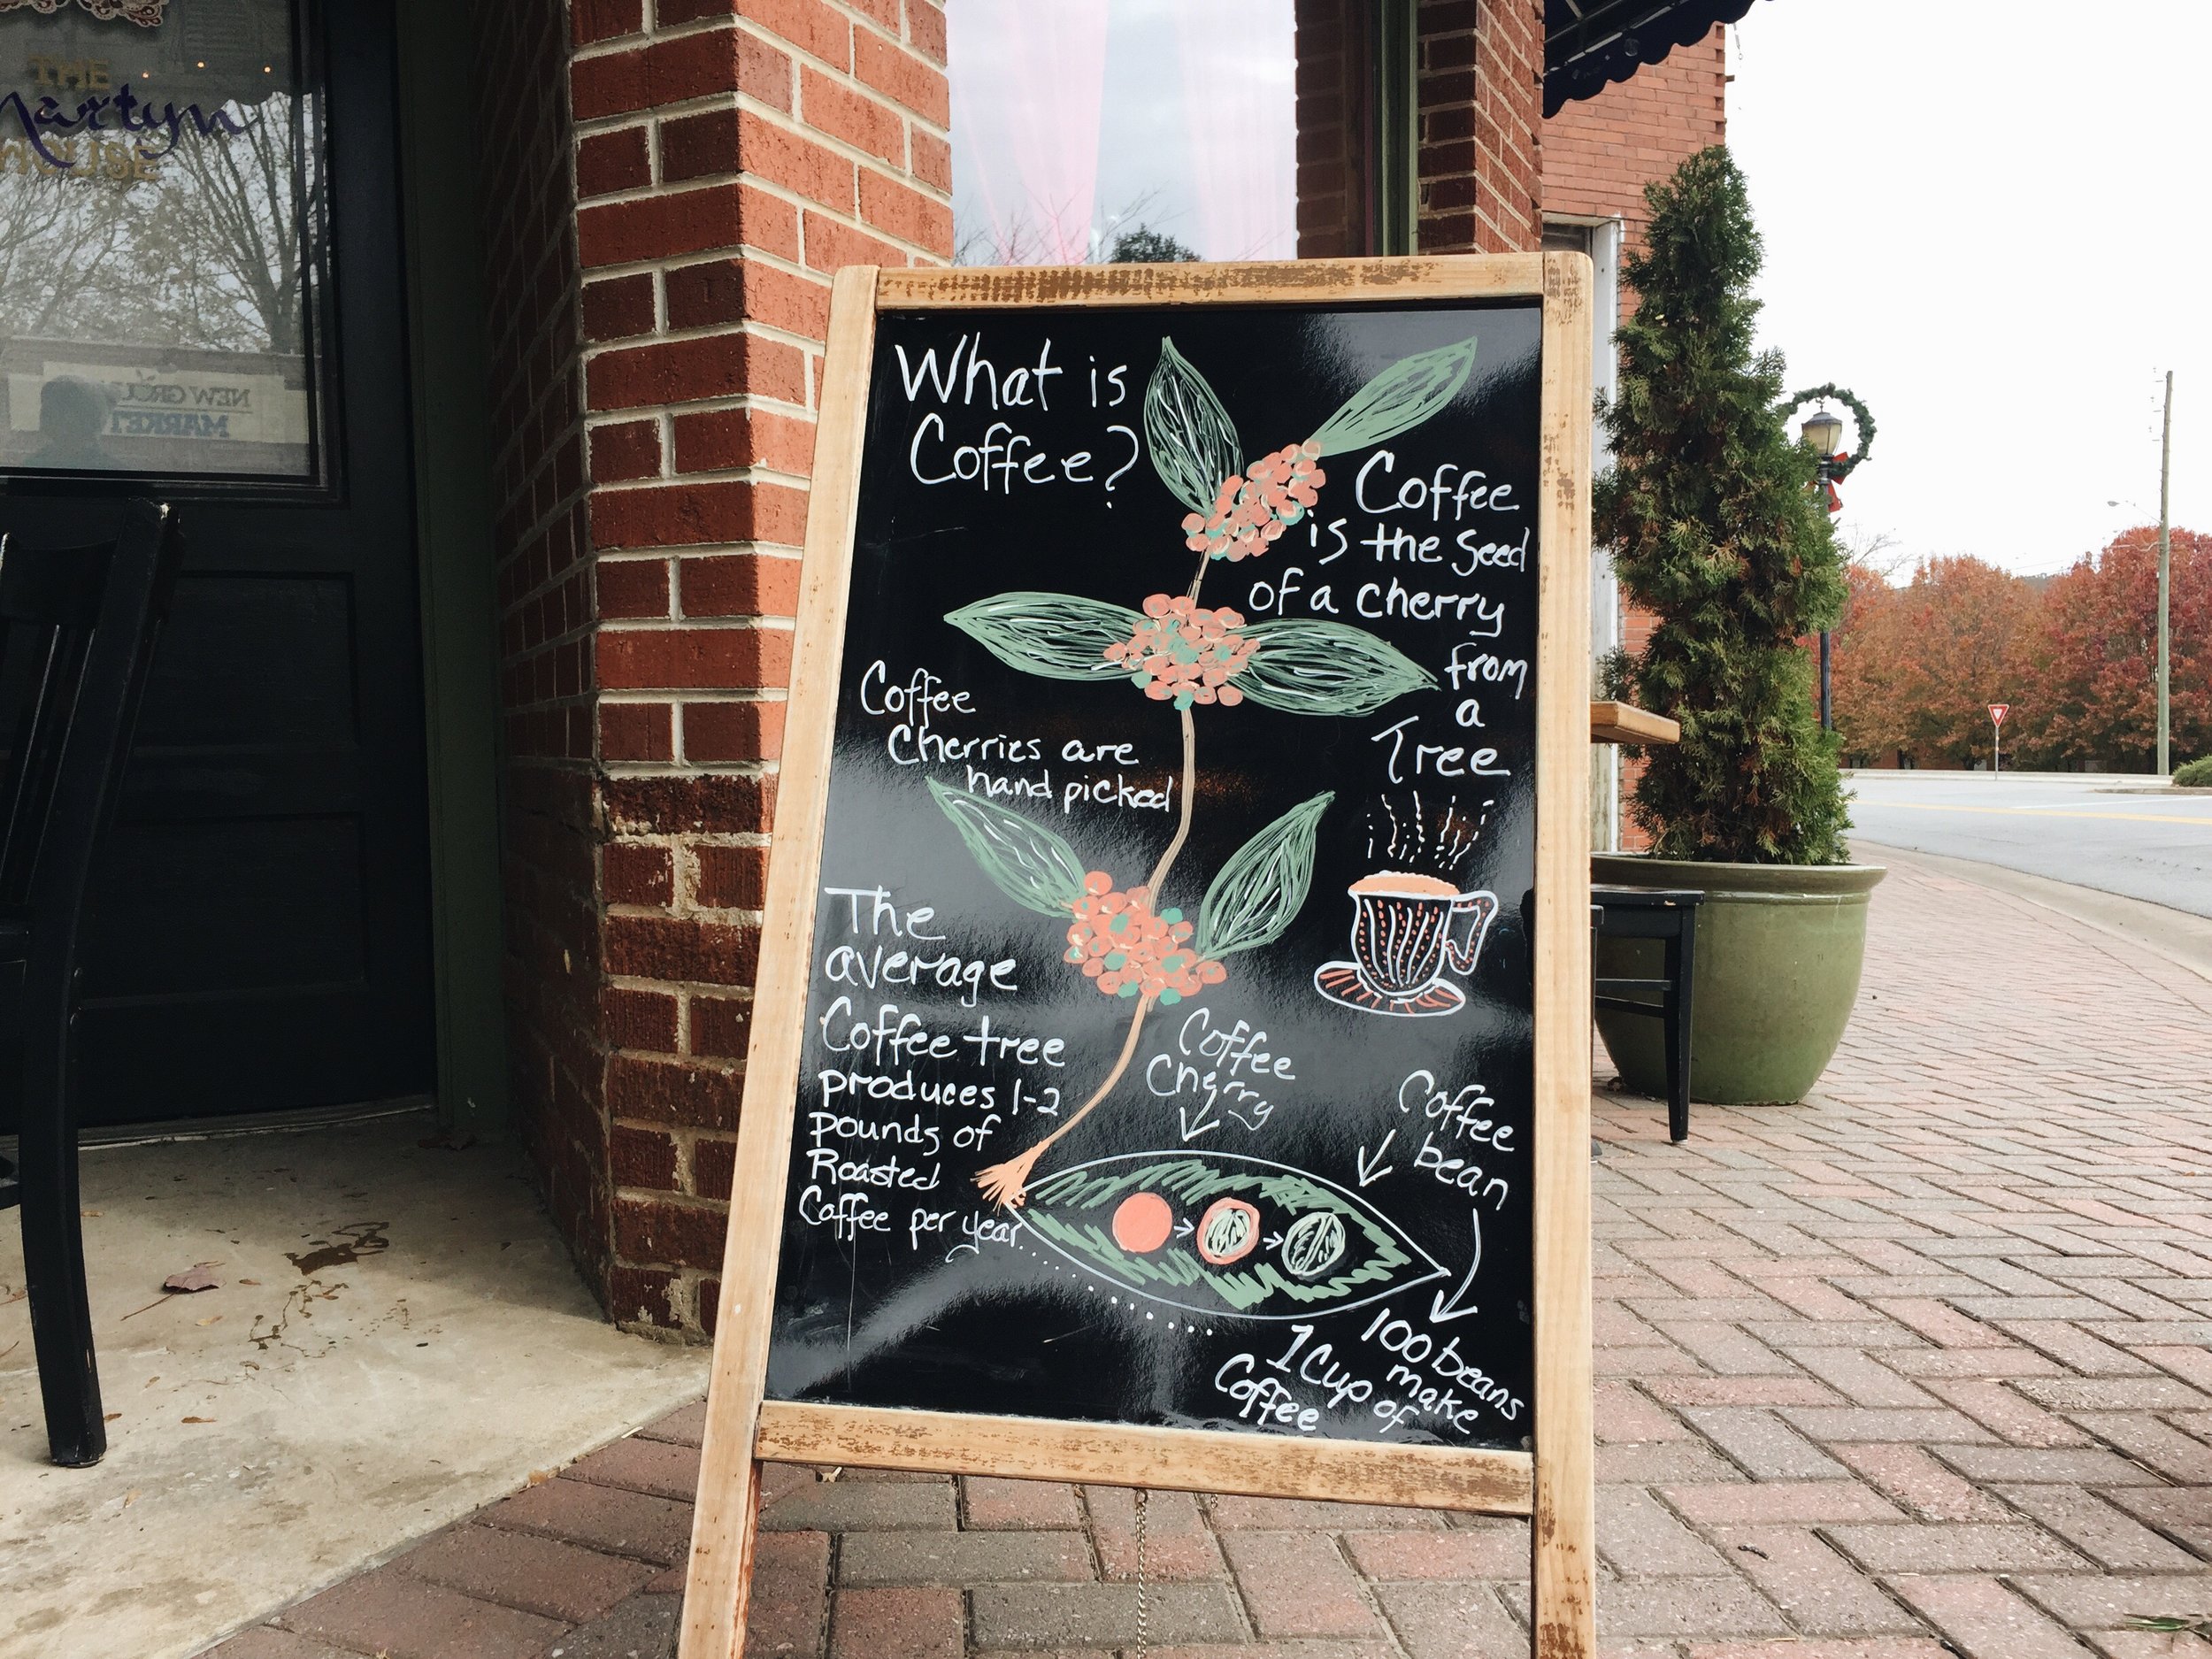 THE
Martyn
HOUSE
NEW
MARKET
What is
Coffee?
Coffee
is the seed
of a cherry
from
a
Tree
Coffee
Cherries are
hand picked
The
average
Coffee tree
produces 1-2
pounds of
Roasted
Coffee per year
Coffee
Cherry
Coffee
bean
100 beans
make
1 Cup of
Coffee